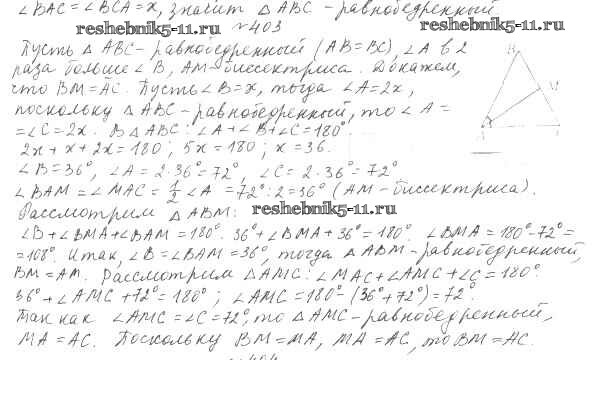 ∠BAC = ∠BCA = x, значит △ABC - равнобедренный
reshebnik5-11.ru
№403
reshebnik5-11.ru
Пусть △ABC - равнобедренный (AB=BC), ∠A в 2
раза больше ∠B, AM - биссектриса. Докажем,
что BM=AC. Пусть ∠B=x, тогда ∠A=2x,
поскольку △ABC - равнобедренный, то ∠A =
=∠C=2x. В △ABC: ∠A+∠B+∠C=180°.
2x+x+2x=180; 5x=180; x=36.
∠B=36°, ∠A=2·36°=72°, ∠C=2·36°=72°
∠BAM=∠MAC=1/2∠A=72°:2=36° (AM-биссектриса).
Рассмотрим △ABM:
reshebnik5-11.ru
∠B+∠BMA+∠BAM=180°. 36°+∠BMA+36°=180°. ∠BMA=180°-72°=
=108°. Итак, ∠B=∠BAM=36°, тогда △ABM-равнобедренный,
BM=AM. Рассмотрим △AMC: ∠MAC+∠AMC+∠C=180°.
36°+∠AMC+72°=180°; ∠AMC=180°-(36°+72°)=72°.
Так как ∠AMC=∠C=72°, то △AMC-равнобедренный,
MA=AC. Поскольку BM=MA, MA=AC, то BM=AC.
B
M
A